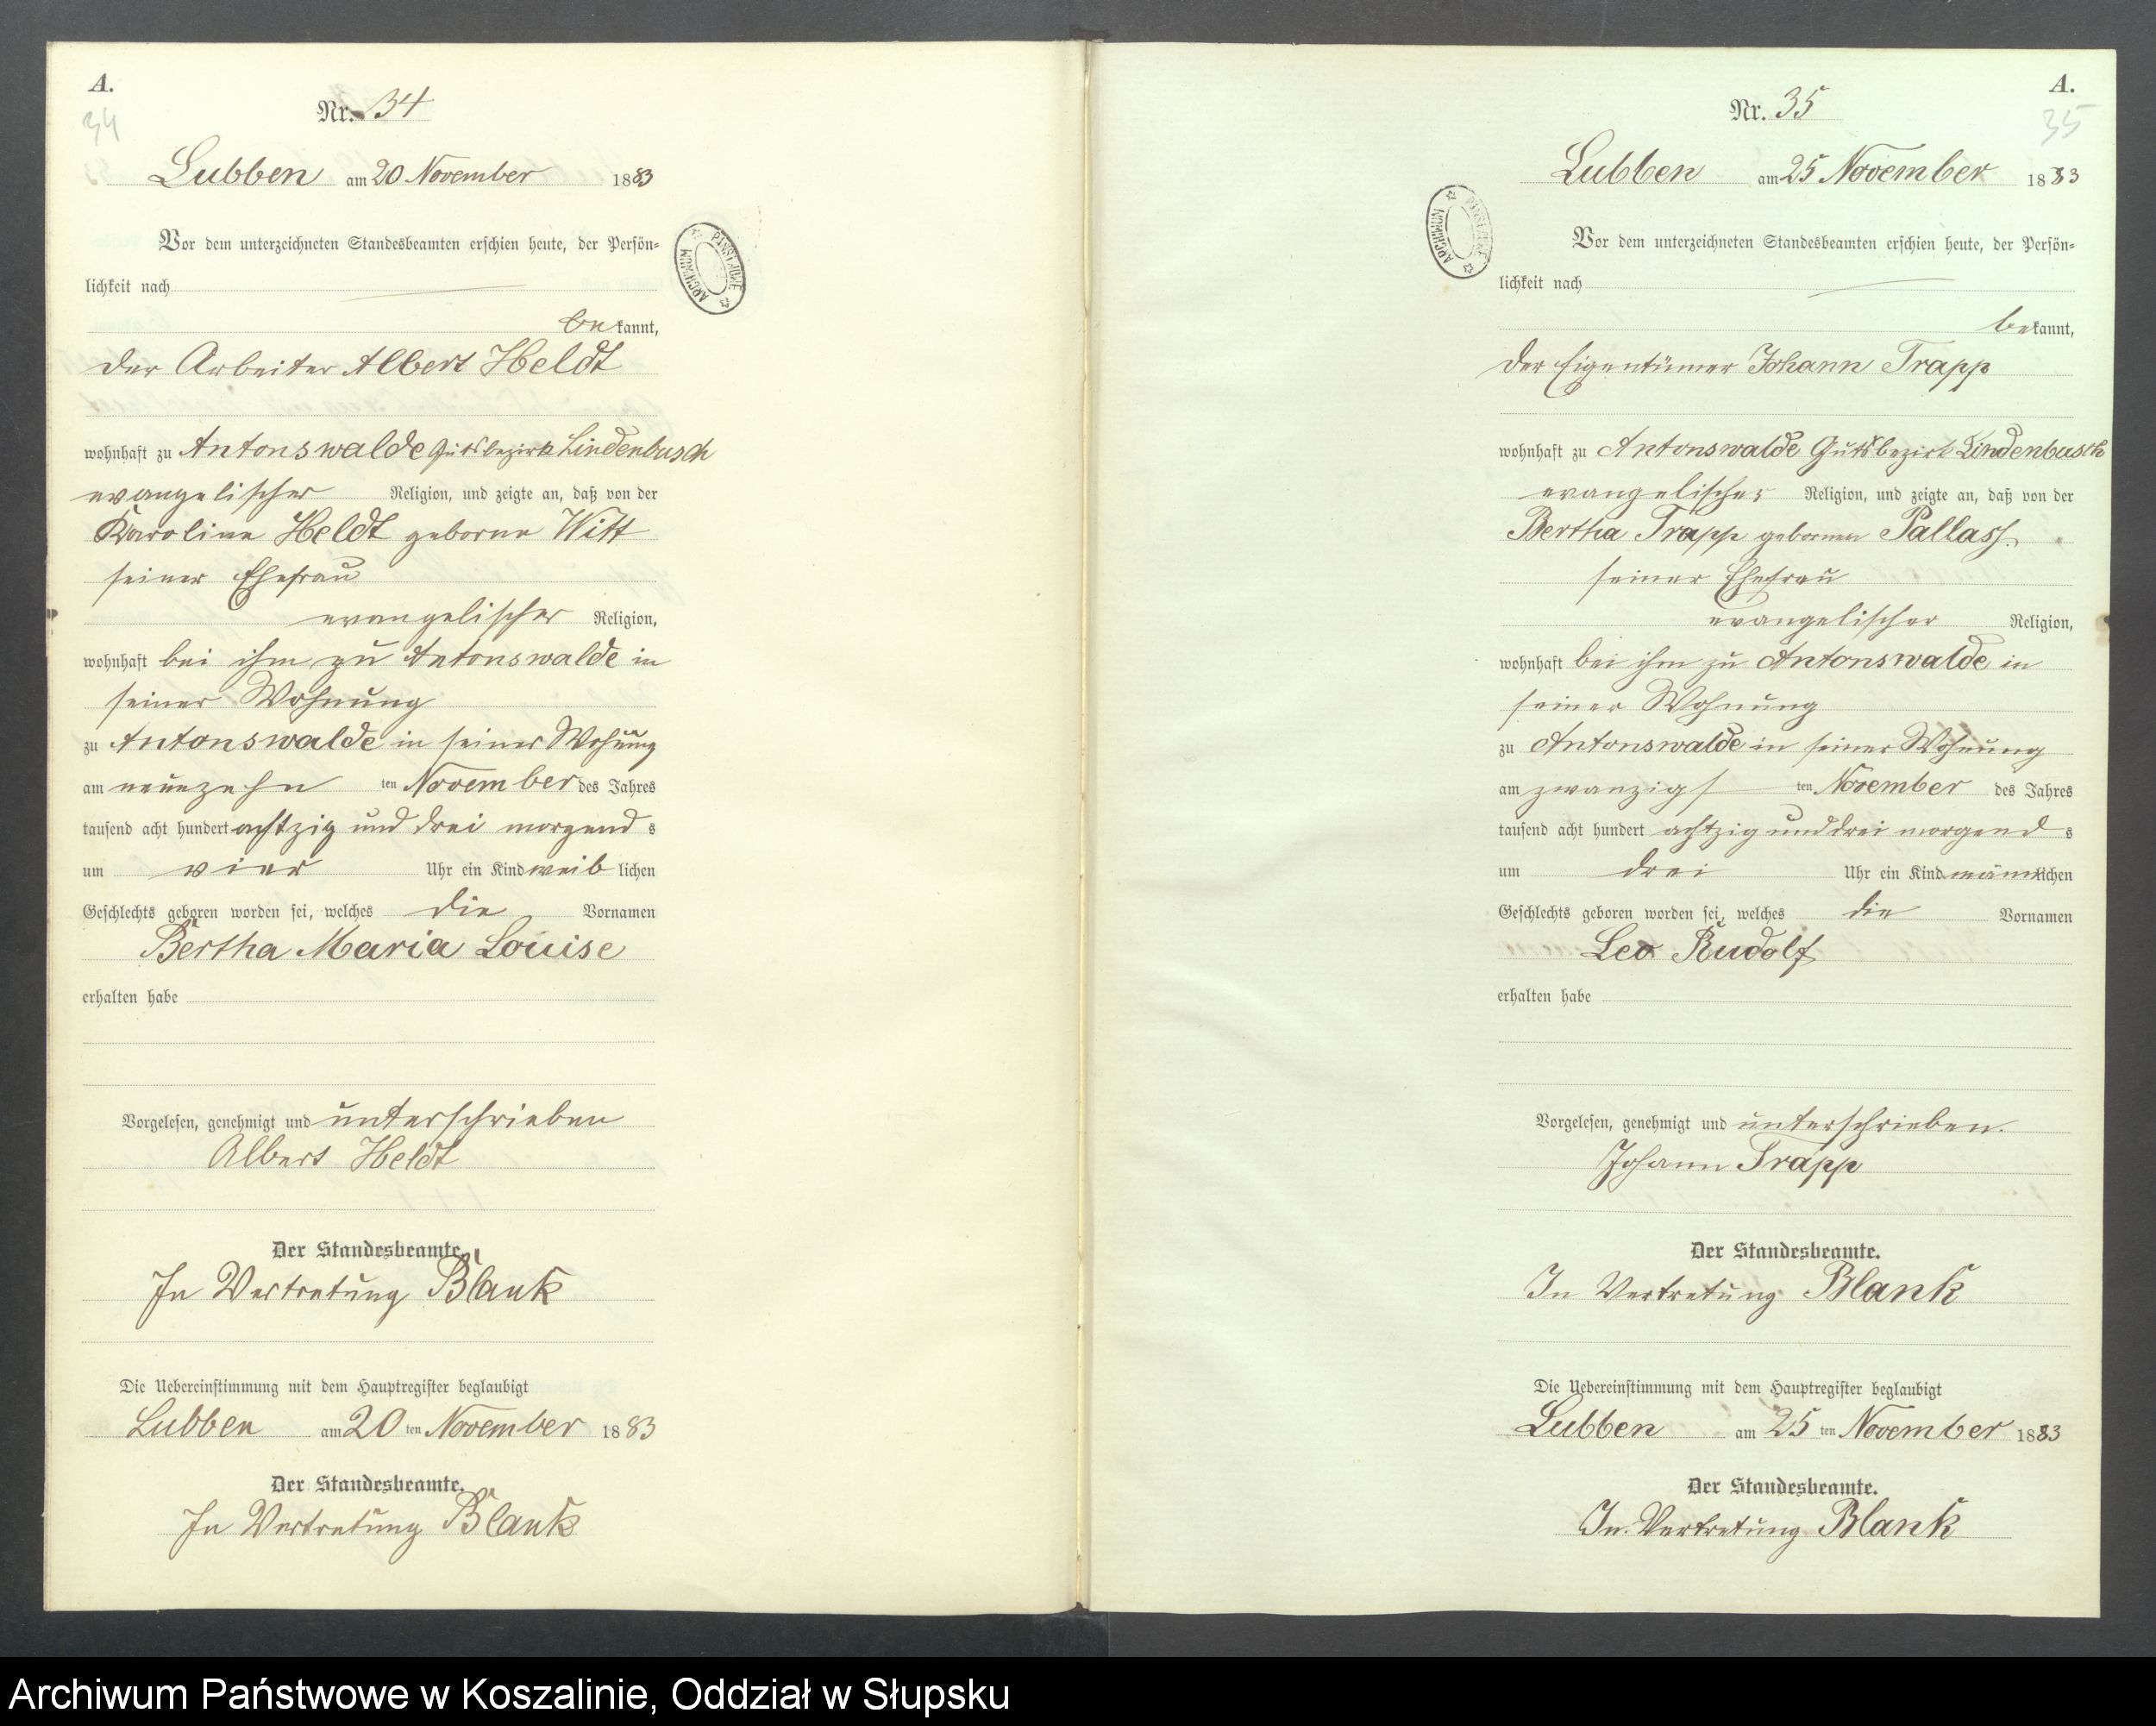 A.
34
Nr. 34
Lubben am 20 November 1883
Vor dem unterzeichneten Standesbeamten erschien heute, der Persön-
lichkeit nach
bekannt,
der Arbeiter Albert Heldt
wohnhaft zu Antonswalde Gutsbezirk Lindenbusch
evangelischer Religion, und zeigte an, daß von der
Karoline Heldt geborne Witt
seiner Ehefrau
evangelischer Religion,
wohnhaft bei ihm zu Antonswalde in
seiner Wohnung
zu Antonswalde in seiner Wohnung
am neunzehn ten November des Jahres
tausend acht hundert achtzig und drei morgends
um vier Uhr ein Kind weiblichen
Geschlechts geboren worden sei, welches die Vornamen
Bertha Maria Louise
erhalten habe
Vorgelesen, genehmigt und unterschrieben
Albert Heldt
Der Standesbeamte.
In Vertretung Blank
Die Uebereinstimmung mit dem Hauptregister beglaubigt
Lubben am 20 ten November 1883
Der Standesbeamte.
In Vertretung Blank
ARCHIWUM PAŃSTWOWE
A.
35
Nr. 35
Lubben am 25 November 1883
Vor dem unterzeichneten Standesbeamten erschien heute, der Persön-
lichkeit nach
bekannt,
der Eigentümer Johann Trapp
wohnhaft zu Antonswalde Gutsbezirk Lindenbusch
evangelischer Religion, und zeigte an, daß von der
Bertha Trapp gebornen Pallass
seiner Ehefrau
evangelischer Religion,
wohnhaft bei ihm zu Antonswalde in
seiner Wohnung
zu Antonswalde in seiner Wohnung
am zwanzigs ten November des Jahres
tausend acht hundert achtzig und drei morgends
um drei Uhr ein Kind männlichen
Geschlechts geboren worden sei, welches die Vornamen
Leo Rudolf
erhalten habe
Vorgelesen, genehmigt und unterschrieben.
Johann Trapp
Der Standesbeamte.
In Vertretung Blank
Die Uebereinstimmung mit dem Hauptregister beglaubigt
Lubben am 25 ten November 1883
Der Standesbeamte.
In Vertretung Blank
ARCHIWUM PAŃSTWOWE
Archiwum Państwowe w Koszalinie, Oddział w Słupsku